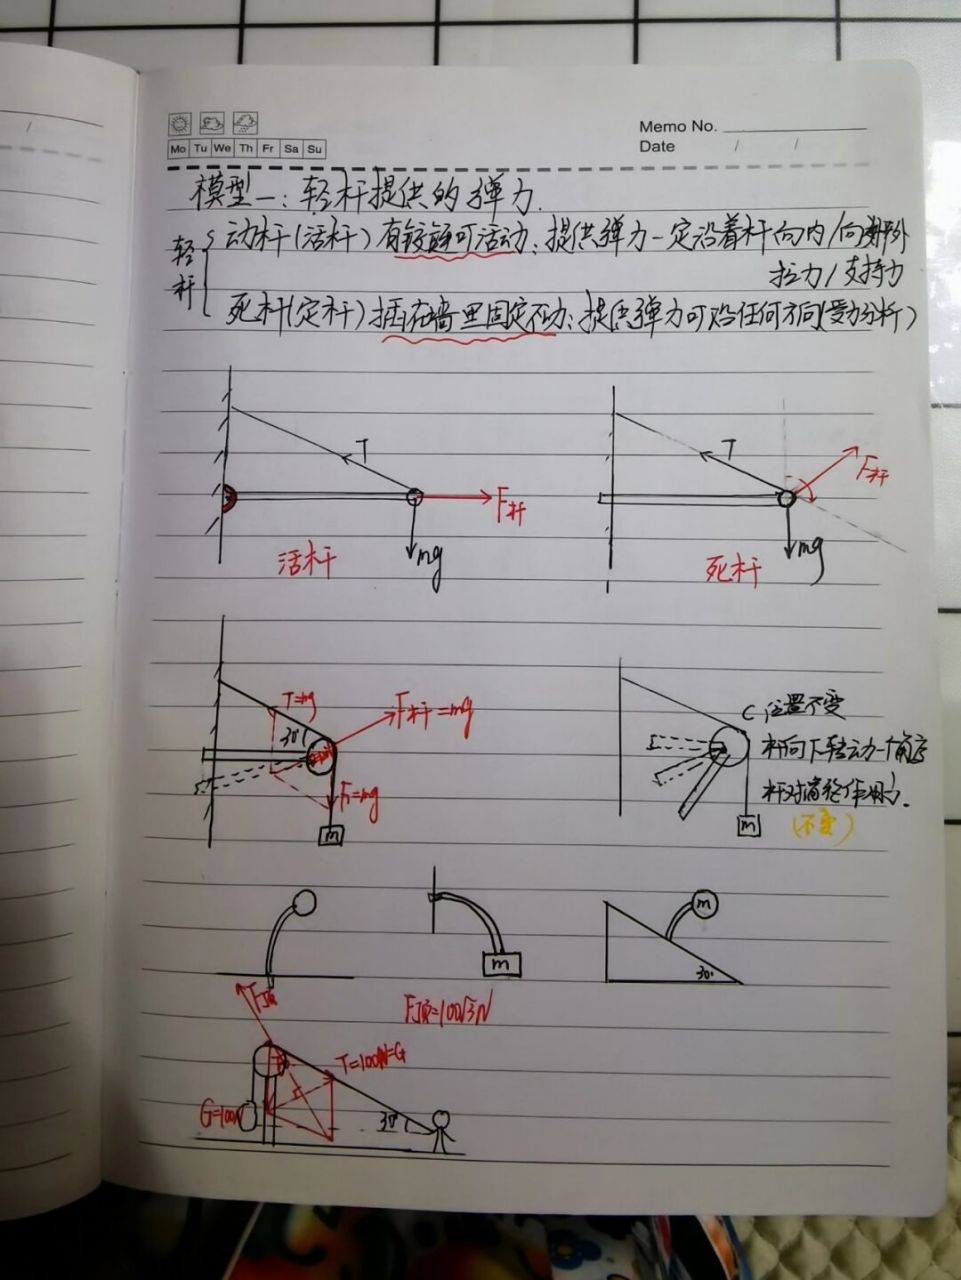 Memo No.
Mo Tu We Th Fr Sa Su
Date / /
模型一：轻杆提供的弹力.
轻杆
动杆(活杆)有铰链可活动：提供弹力一定沿着杆向内/向外
拉力/支持力
死杆(定杆)插在墙里固定不动：提供弹力可沿任何方向(受力分析)
T
F杆
mg
活杆
T
F杆
mg
死杆
T=mg
30°
F杆=mg
F=mg
m
C位置不变
杆向下转动一个角度
杆对滑轮作用力.
(不变)
m
m
m
30°
F顶
F顶=100√3N
T=100N=G
G=100N
30°